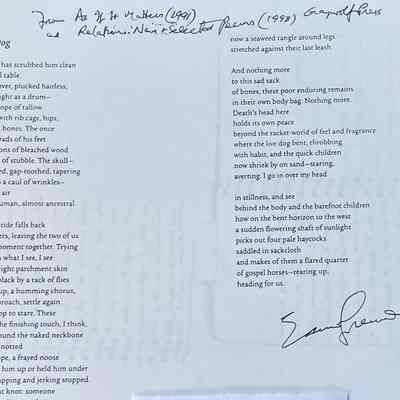 From As If It Matters (1991)
Relations: New & Selected Poems (1998) Graywolf Press
og
has scrubbed him clean
table
ver, plucked hairless,
ight as a drum—
ope of tallow
with rib cage, hips,
bones. The once
ads of his feet
ons of bleached wood
of stubble. The skull—
ed, gap-toothed, tapering
a caul of wrinkles—
air
uman, almost ancestral.
tide falls back
ers, leaving the two of us
moment together. Trying
what I see, I see
right parchment skin
black by a rack of flies
up, a humming chorus,
proach, settle again
op to stare. These
he finishing touch, I think,
ound the naked neckbone
notted
ope, a frayed noose
him up or held him under
pping and jerking stopped.
at knot: someone
now a seaweed tangle around legs
stretched against their last leash.
And nothing more
to this sad sack
of bones, these poor enduring remains
in their own body bag. Nothing more.
Death's head here
holds its own peace
beyond the racket-world of feel and fragrance
where the live dog bent, throbbing
with habit, and the quick children
now shriek by on sand—staring,
averting. I go in over my head
in stillness, and see
behind the body and the barefoot children
how on the bent horizon to the west
a sudden flowering shaft of sunlight
picks out four pale haycocks
saddled in sackcloth
and makes of them a flared quartet
of gospel horses—rearing up,
heading for us.